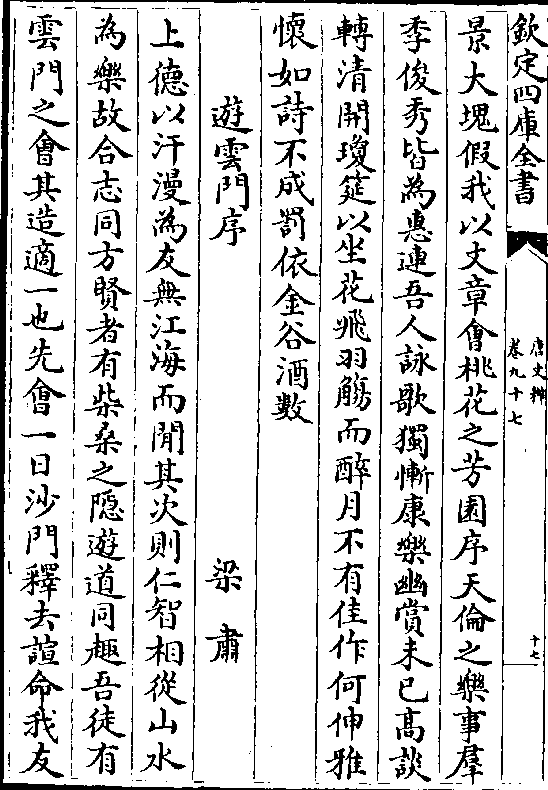 欽定四庫全書
唐文粹
卷九十七
十七
景大塊假我以文章會桃花之芳園序天倫之樂事羣
季俊秀皆為惠連吾人詠歌獨慚康樂幽賞未已髙談
轉清開瓊筵以坐花飛羽觴而醉月不有佳作何伸雅
懷如詩不成罰依金谷酒數
遊雲門序 梁肅
上德以汗漫為友無江海而閒其次則仁智相從山水
為樂故合志同方賢者有柴桑之隠遊道同趣吾徒有
雲門之會其造適一也先會一日沙門釋去諠命我友